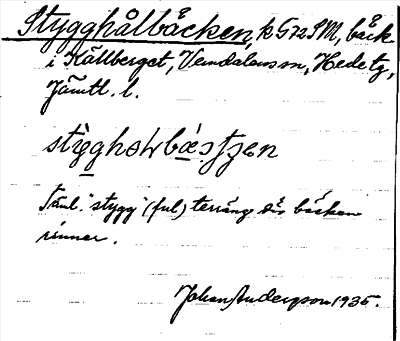 Stygghålbäcken, k G72SM, bäck
i Källberget, Vemdalens sn, Hede tg,
Jämtl. l.
stỳghoɫbæ̀stʃen
"stygg" (ful) terräng där bäcken
rinner.
Johan Andersson 1935.